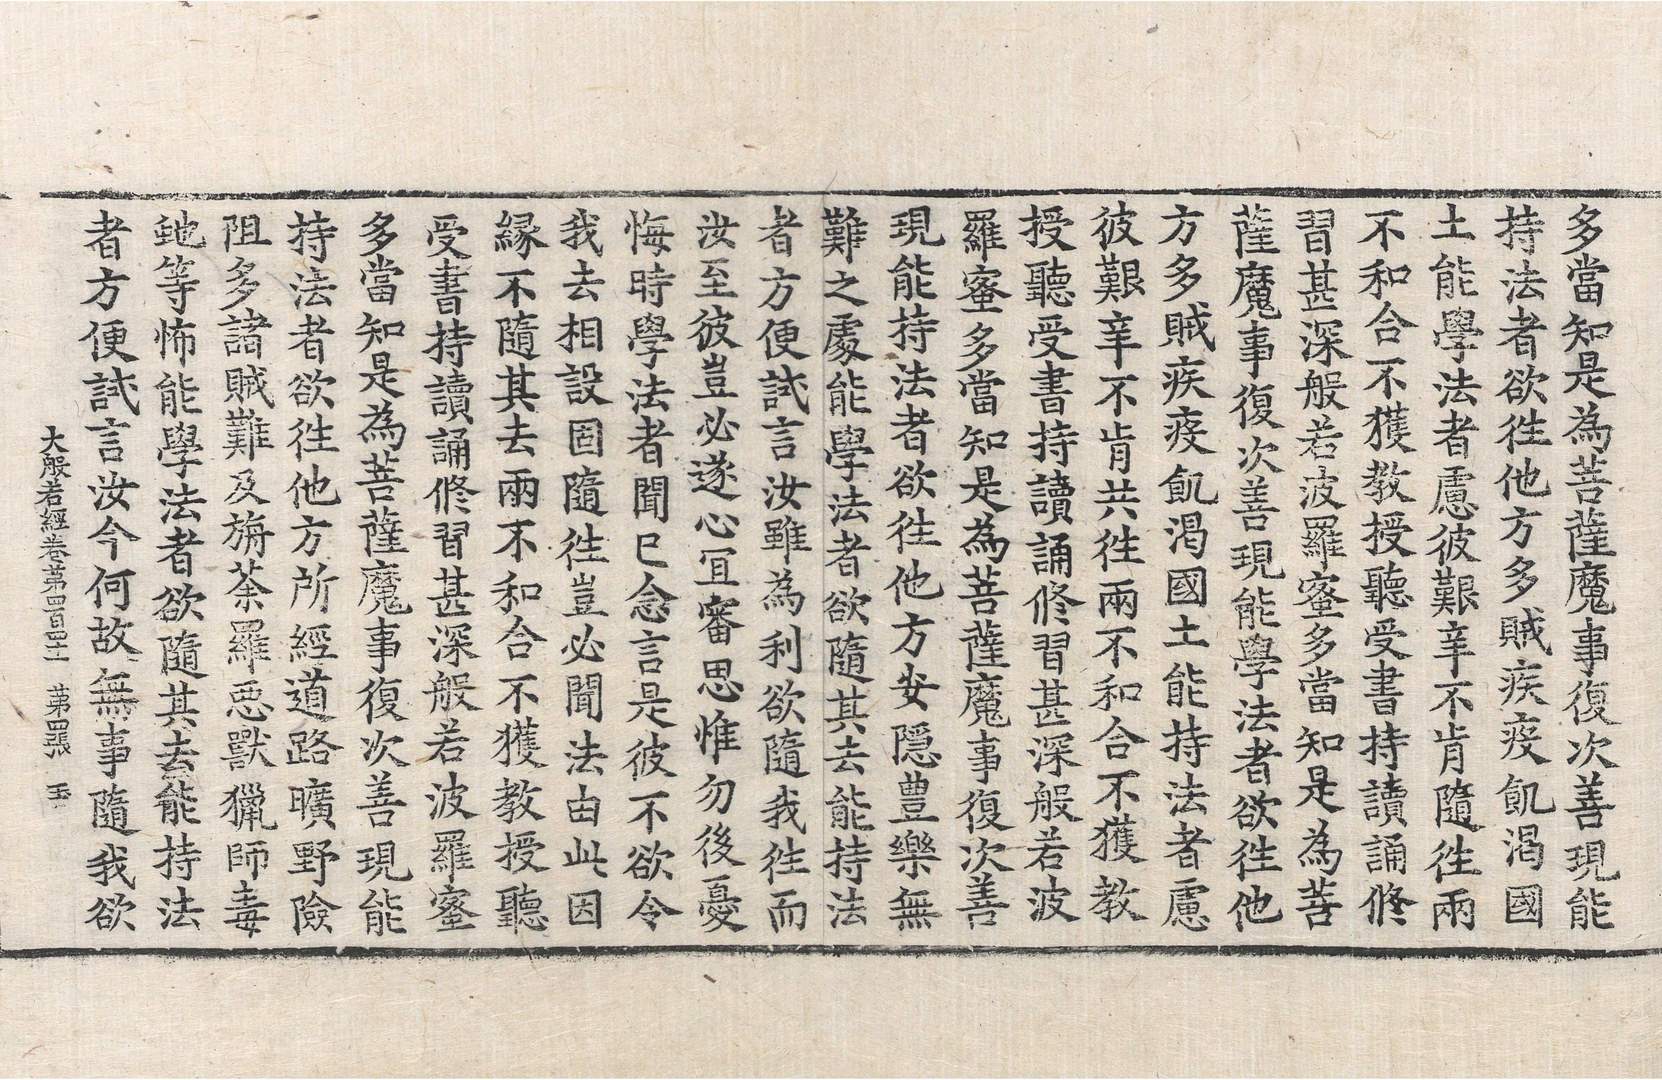 多當知是為菩薩魔事復次善現能
持法者欲徃他方多賊疾疫飢渴國
土能學法者慮彼艱辛不肯隨徃兩
不和合不獲教授聽受書持讀誦修
習甚深般若波羅蜜多當知是為菩
薩魔事復次善現能學法者欲徃他
方多賊疾疫飢渴國土能持法者慮
彼艱辛不肯共徃兩不和合不獲教
授聽受書持讀誦修習甚深般若波
羅蜜多當知是為菩薩魔事復次善
現能持法者欲徃他方安隱豊樂無
難之處能學法者欲隨其去能持法
者方便試言汝雖為利欲隨我徃而
汝至彼豈必遂心冝審思惟勿後憂
悔時學法者聞已念言是彼不欲令
我去相設固隨徃豈必聞法由此因
緣不隨其去兩不和合不獲教授聽
受書持讀誦修習甚深般若波羅蜜
多當知是為菩薩魔事復次善現能
持法者欲徃他方所經道路曠野險
阻多諸賊難及旃荼羅惡獸獵師毒
虵等怖能學法者欲隨其去能持法
者方便試言汝今何故無事隨我欲
大般若經卷第四百四十一　第四張　玉